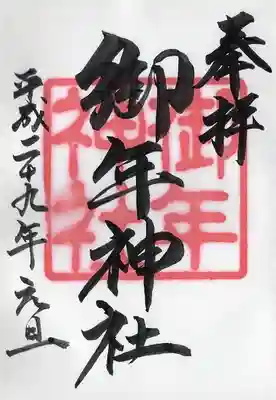 奉拝
御年神社
御年
神社
平成二十九年 元旦